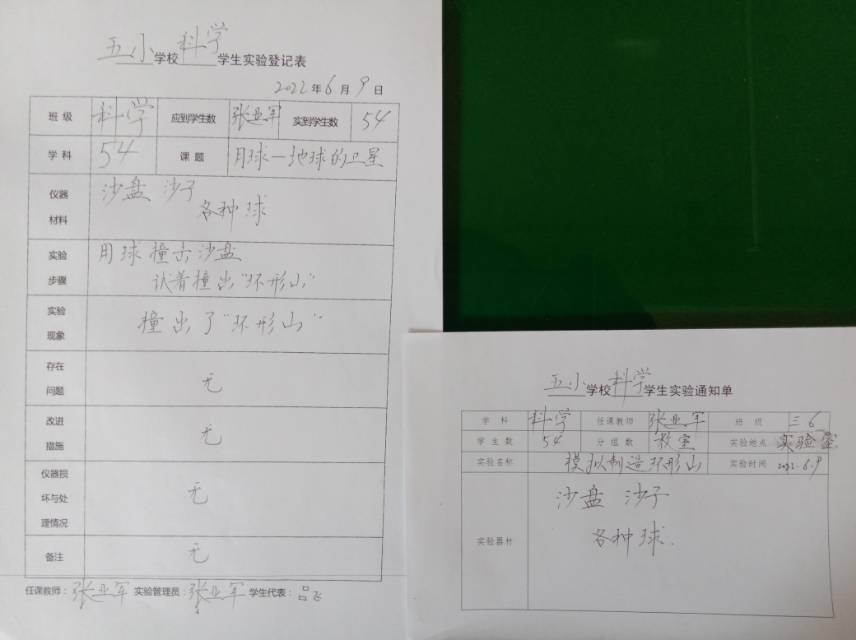 五小学校科学学生实验登记表
2022年6月9日
班级 科学 应到学生数 张亚军 实到学生数 54
学科 54 课题 月球—地球的卫星
仪器材料 沙盘 沙子
各种球
实验步骤 用球撞击沙盘
试着撞出"环形山"
实验现象 撞出了"环形山"
存在问题 无
改进措施 无
仪器损坏与处理情况 无
备注 无
任课教师：张亚军 实验管理员：张亚军 学生代表：
五小学校科学学生实验通知单
学科 科学 任课教师 张亚军 班级 三6
学生数 54 分组数 教室 实验地点 实验室
实验名称 模拟制造环形山 实验时间 2022.6.9
实验器材 沙盘 沙子
各种球.